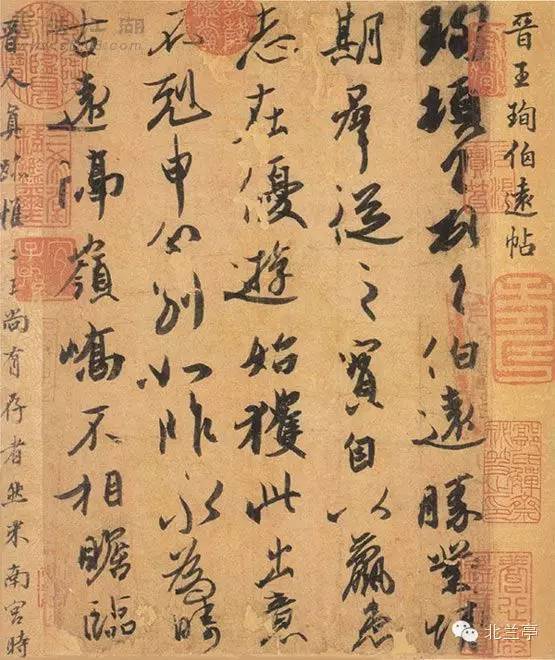 晉王珣伯遠帖
珣頓首頓首伯遠勝業情
期群從之寶自以羸患
志在優遊始獲此出意
不剋申分別如昨永為疇
古遠隔嶺嶠不相瞻臨
晉人真跡惟二王尚有存者然米南宮時
北兰亭